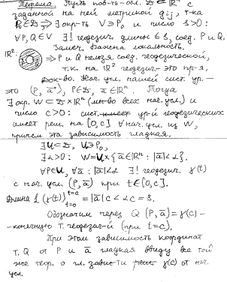 Теорема. Пусть пов-ть - обл. D ⊂ ℝⁿ с
заданной на ней метрикой gᵢⱼ, т-ка
P₀∈D ⇒ ∃ окр-ть V∋P₀ и число δ>0:
∀P,Q∈V ∃! геодезич. длины < δ, соед. P и Q.
Замеч. Важна локальность,
P и Q нельзя соед. геодезической,
т.к. на ℝⁿ геодезич - это пр-я.
Док-во. Нач. усл. нашей сист. ур. -
это (P, a), P∈D, a∈ℝⁿ. Тогда
∃ окр. W ⊂ D×ℝⁿ (мн-во всех нач. усл) и
число c>0: ур-й геодезических
имеет реш. на [0,c] ∀ нач. усл. из W,
причем эта зависимость гладкая.
∃ U ⊂ D, U∋P₀
∃ α>0: W = U×{a∈ℝⁿ: |a|<α}.
∀P∈U, ∀a: |a|<α ∃! геодезич. γ(t)
с нач. усл. (P, a) при t∈[0,c].
= |a|c < αc = δ.
Обозначим через Q(P,a) = γ(c) -
конечную т. геодезич-й (при t=c).
При этом зависимость координат
т. Q от P и a гладкая ввиду все той
же теор. о γ(c) от нач.
усл.